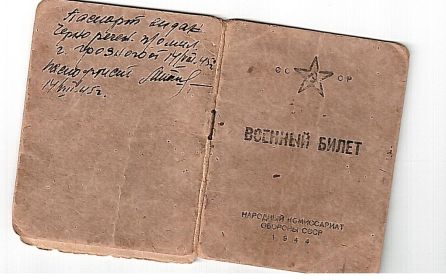 Паспорт выдан
Чернореченск п/о мил
г. Грозного от 14/VII.45г
паспортист
14/VII.45г.
СС СР
ВОЕННЫЙ БИЛЕТ
НАРОДНЫЙ КОМИССАРИАТ
ОБОРОНЫ СССР
1944